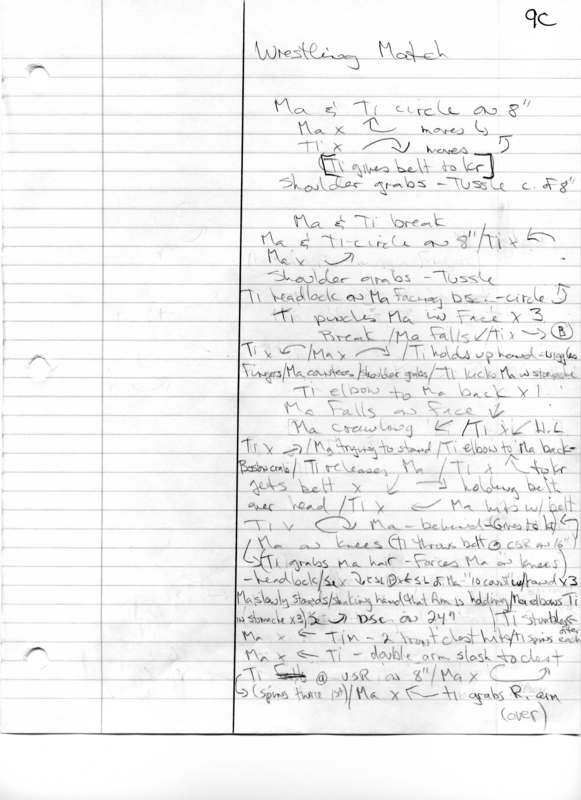 9C
Wrestling Match
Ma & Ti circle on 8"
Ma x ↖ moves ↳
Ti x ↷ moves ↰
[Ti gives belt to Kr]
Shoulder grabs - Tussle c. of 8"
Ma & Ti break
Ma & Ti - circle on 8"/Ti x ↖
Ma x ↗
Shoulder grabs - Tussle
Ti headlock on Ma facing DSC - circle ↰
Ti punches Ma in Face x 3
Break/Ma Falls ↙/Ti x →
Ti x ↙/Ma x ↷/Ti holds up hand - wiggles
Fingers/Ma counters/shoulder grabs/Ti kicks Ma in stomache
Ti elbow to Ma back x 1
Ma Falls on Face ↙
Ma crawling ↙/Ti x ↙
Ti x ↗/Ma trying to stand/Ti elbow to Ma back -
Boston crab/Ti releases Ma/Ti x ↖ to Kr
gets belt x ↙ → holding belt
over head/Ti x ← Ma hits w/ belt
Ti x Ma - behind - Gives to Kr
Ma on knees (Ti throws belt @ CSR on 16")
Ti grabs Ma hair - Forces Ma on knees
- headlock/ SL of Ma "10 count" w/hand x 3
Ma slowly stands/shaking hand that Arm is holding/Ma elbows Ti
in stomache x 3) DSC on 24" Ti stumbles ←
Ma x ← Tim - 2 front chest hits/Ti spins after each
Ma x ← Ti - double arm slash to chest
Ti @ USR on 8"/Ma x
(spins twice 1st)/Ma x ↖ Ti grabs R. arm
(over)